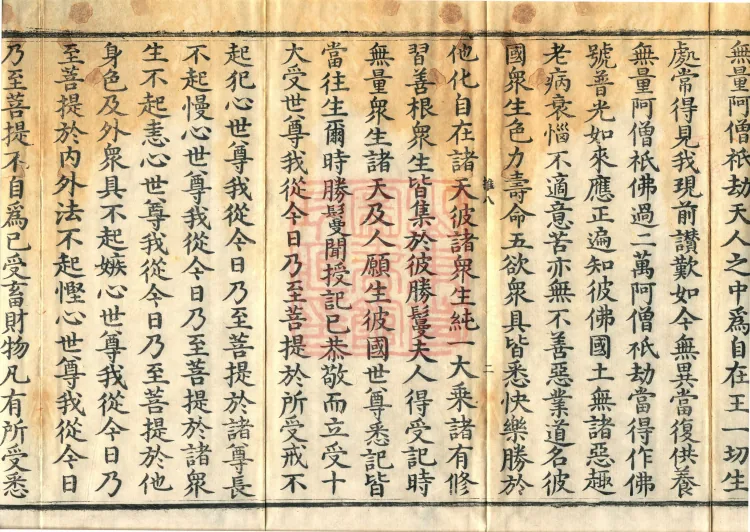 無量阿僧祇劫天人之中爲自在王一切生
處常得見我現前讃歎如今無異當復供養
無量阿僧祇佛過二萬阿僧祇劫當得作佛
號普光如來應正遍知彼佛國土無諸惡趣
老病衰惱不適意苦亦無不善惡業道名彼
國衆生色力壽命五欲衆具皆悉快樂勝於
他化自在諸天彼諸衆生純一大乘諸有修
習善根衆生皆集於彼勝鬘夫人得受記時
無量衆生諸天及人願生彼國世尊悉記皆
當往生爾時勝鬘聞授記已恭敬而立受十
大受世尊我從今日乃至菩提於所受戒不
起犯心世尊我從今日乃至菩提於諸尊長
不起慢心世尊我從今日乃至菩提於諸衆
生不起恚心世尊我從今日乃至菩提於他
身色及外衆具不起嫉心世尊我從今日乃
至菩提於內外法不起慳心世尊我從今日
乃至菩提不自爲已受畜財物凡有所受悉
二